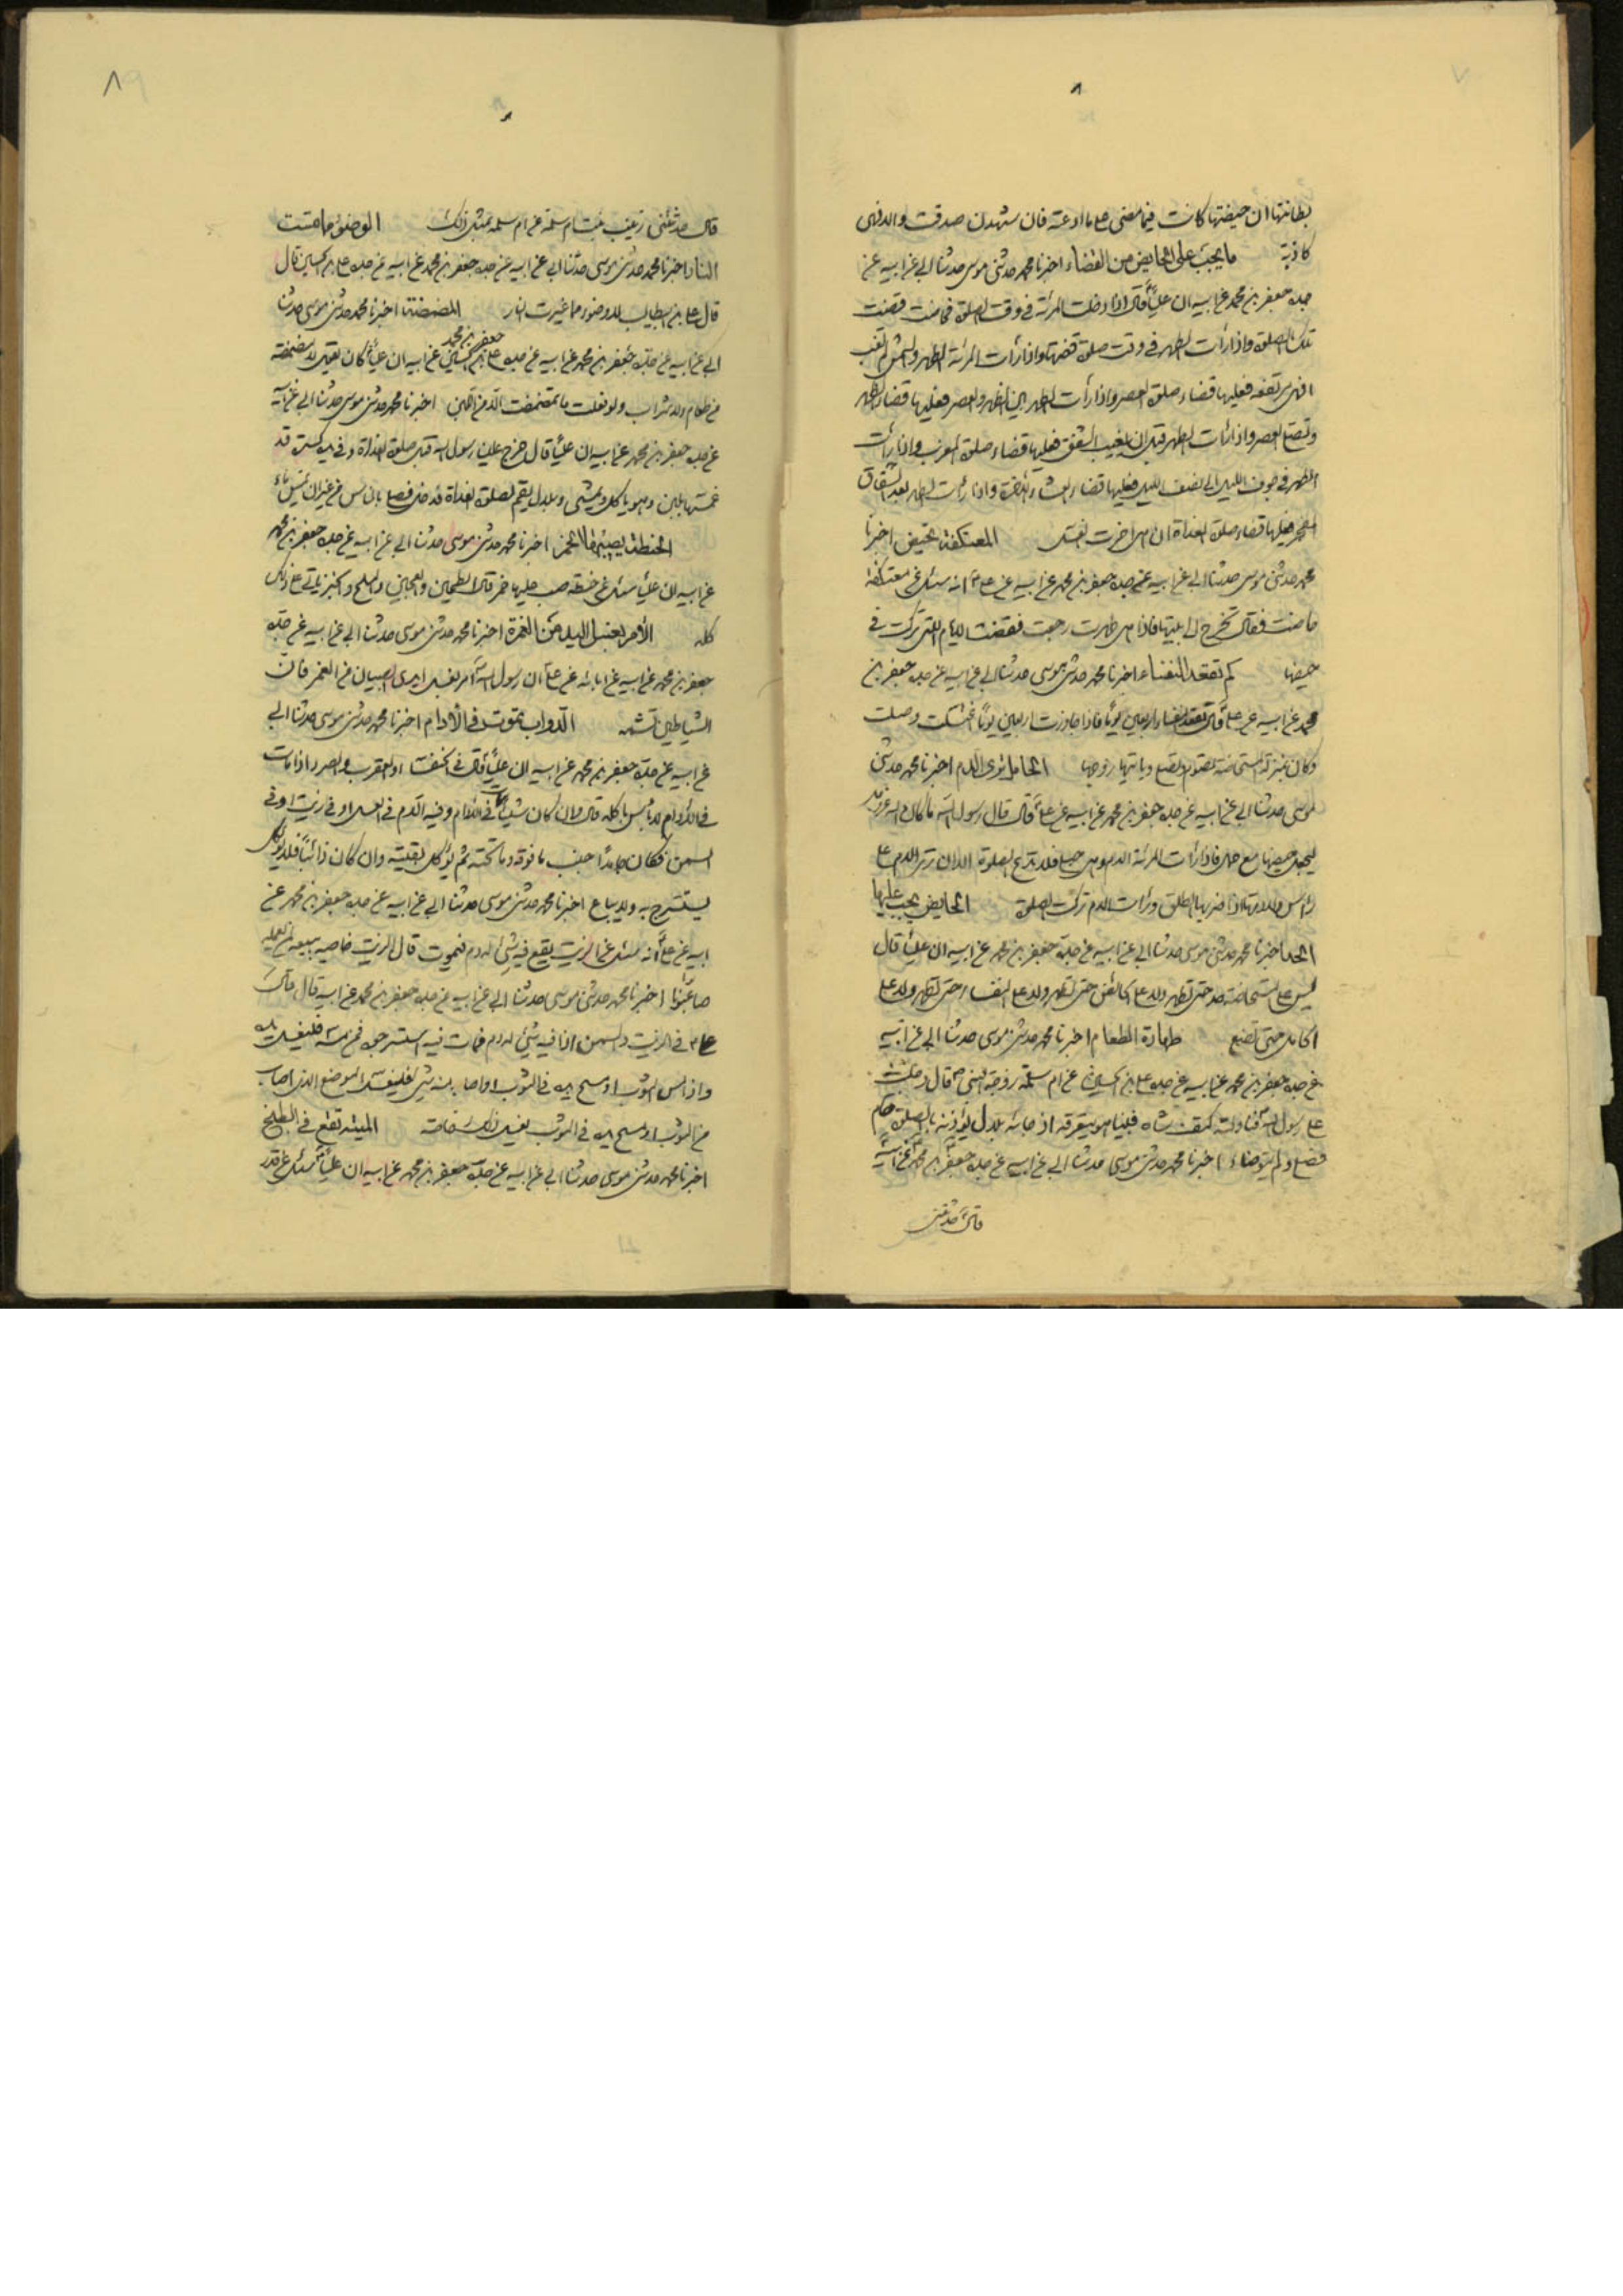 ٨
بطانتها ان حيضتها كانت فيما مضى على ما ادعته فان شهدن صدقت والا فهى
كاذبة ما يجب على الحايض من القضاء اخبرنا محمد حدثنى موسى حدثنا ابى عن ابيه عن
جده جعفر بن محمد عن ابيه ان عليا قال اذا دخلت المرئة فى وقت الصلوة فحاضت قضت
تلك الصلوة واذا رأت الطهر فى وقت صلوة قضتها واذا رأت المرئة الطهر والشمس لم تغب
فعليها قضاء صلوة العصر واذا رأت الطهر بين الظهر والعصر فعليها قضاء الظهر
وتصلى العصر واذا رأت الطهر قبل ان يغيب الشفق فعليها قضاء صلوة المغرب واذا رأت
الطهر فى جوف الليل الى نصف الليل فعليها قضاء العشاء الاخرة واذا رأت الطهر بعد انشقاق
الفجر فعليها قضاء صلوة الغداة ان هى اخرت الغسل المعتكفة تحيض اخبرنا
محمد حدثنى موسى حدثنا ابى عن ابيه عن جده جعفر بن محمد عن ابيه عن على انه سئل عن معتكفة
حاضت فقال تخرج الى بيتها فاذا هى طهرت رجعت فقضت الايام التى تركت فى
حيضها كم تقعد النفساء اخبرنا محمد حدثنى موسى حدثنا ابى عن ابيه عن جده جعفر بن
محمد عن ابيه عن على قال تقعد النفساء اربعين يوما فاذا جاوزت اربعين يوما اغتسلت وصلت
وكان بمنزلة المستحاضة تصوم وتصلى وياتيها زوجها الحامل ترى الدم اخبرنا محمد حدثنى
موسى حدثنا ابى عن ابيه عن جده جعفر بن محمد عن ابيه عن على قال قال رسول الله ما كان الله عز وجل
ليجعل حيضها مع حمل فاذا رأت المرئة الدم وهى حبلى فلا تدع الصلوة الا ان ترى الدم على
رأس ولادتها اذا ضربها الطلق ورأت الدم تركت الصلوة الحايض يجب عليها
الحد اخبرنا محمد حدثنى موسى حدثنا ابى عن ابيه عن جده جعفر بن محمد عن ابيه ان عليا قال
ليس على المستحاضة حد حتى تطهر ولا على الحائض حتى تطهر ولا على النفساء حتى تطهر ولا على
الحامل حتى تضع طهارة الطعام اخبرنا محمد حدثنى موسى حدثنا ابى عن ابيه
عن جده جعفر بن محمد عن ابيه عن جده على بن الحسين عن ام سلمة زوجة النبى ص قال دخلت
على رسول الله فناولته كتف شاة فبينا هو يتعرقه اذ جائه بلال يؤذنه بالصلوة فقام
فصلى ولم يتوضاء اخبرنا محمد حدثنى موسى حدثنا ابى عن ابيه عن جده جعفر بن محمد عن ابيه
قال حدثتنى
٨
قال حدثتنى زينب بنت ام سلمة عن ام سلمة بمثل ذلك الوضوء مما مست
النار اخبرنا محمد حدثنى موسى حدثنا ابى عن ابيه عن جده جعفر بن محمد عن ابيه عن جده على بن الحسين قال
قال على بن ابيطالب لا وضوء مما غيرت النار المضمضة اخبرنا محمد حدثنى موسى حدثنا
ابى عن ابيه عن جده جعفر بن محمد عن ابيه عن جده على بن الحسين عن ابيه ان عليا كان يقول لا مضمضة
من طعام ولا شراب ولو فعلت ما تمضمضت الا من اللبن اخبرنا محمد حدثنى موسى حدثنا ابى عن ابيه
عن جده جعفر بن محمد عن ابيه ان عليا قال خرج علينا رسول الله قبل صلوة الغداة وفى يده كسرة قد
غمسها بلبن وهو ياكل ويمشى وبلال يقيم لصلوة الغداة فدخل فصلى بالناس من غير ان يمس ماء
الحنطة يصيبها الخمر اخبرنا محمد حدثنى موسى حدثنا ابى عن ابيه عن جده جعفر بن محمد
عن ابيه ان عليا سئل عن حنطة صب عليها خمر قال الطحين والعجين والملح والخبز ياتى على ذلك
كله الأمر بغسل اليد من الغمرة اخبرنا محمد حدثنى موسى حدثنا ابى عن ابيه عن جده
جعفر بن محمد عن ابيه عن ابائه عن على ان رسول الله امر بغسل ايدى الصبيان من الغمر فان
الشياطين تشمه الدواب تموت فى الأدام اخبرنا محمد حدثنى موسى حدثنا ابى
عن ابيه عن جده جعفر بن محمد عن ابيه ان عليا قال فى الخنفساء والعقرب والصرد اذا مات
فى الادام لا باس باكله قال وان كان شيئا مات فى الادام وفيه الدم فى العسل او فى زيت او فى
السمن فكان جامدا جنب ما فوقه وما تحته ثم يؤكل بقيته وان كان ذائبا فلا يؤكل
يستسرج به ولا يباع اخبرنا محمد حدثنى موسى حدثنا ابى عن ابيه عن جده جعفر بن محمد عن
ابيه عن على انه سئل عن الزيت يقع فيه شئ له دم فيموت قال الزيت خاصة يبيعه لمن يعمله
صابونا اخبرنا محمد حدثنى موسى حدثنا ابى عن ابيه عن جده جعفر بن محمد عن ابيه قال قال
على فى الزيت والسمن اذا فيه شئ له دم فمات فيه استسرجوه فمن مسه فليغسل يده
واذا مس الثوب او مسح يده فى الثوب او اصابه منه شئ فليغسل الموضع الذى اصاب
من الثوب او مسح يده فى الثوب يغسل ذلك خاصة الميتة تقع فى الطبيخ
اخبرنا محمد حدثنى موسى حدثنا ابى عن ابيه عن جده جعفر بن محمد عن ابيه ان عليا سئل عن قدر